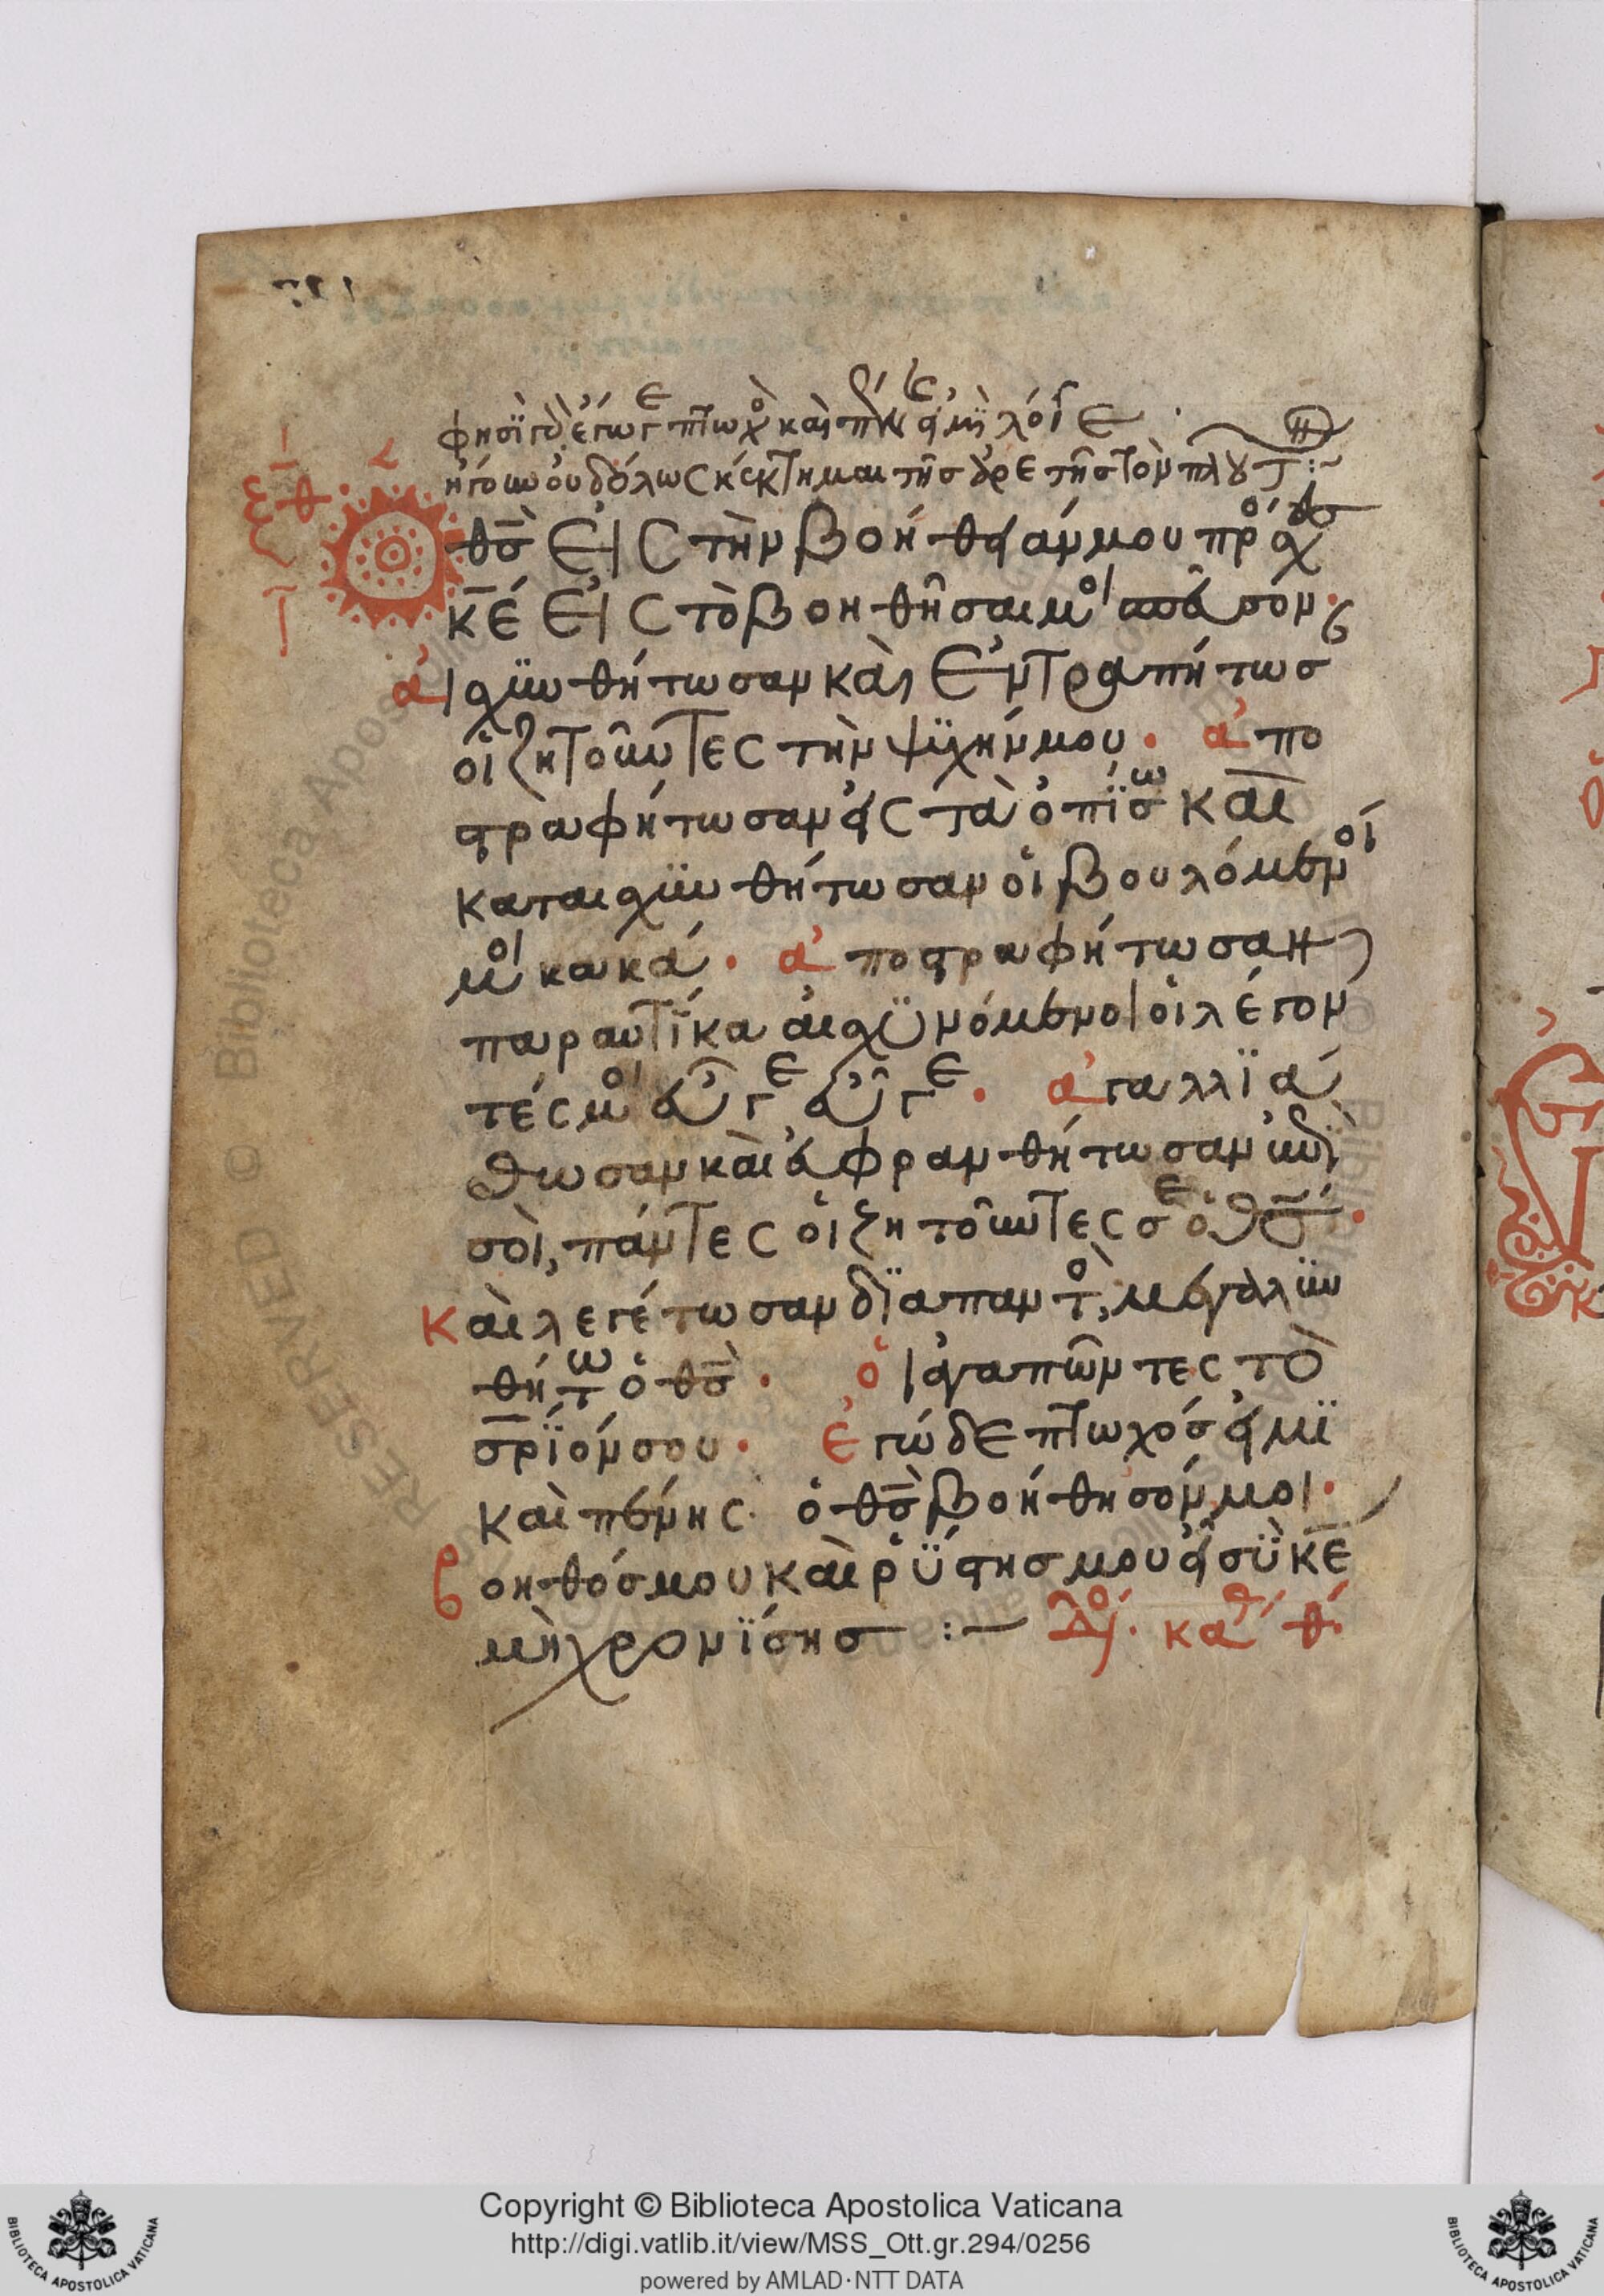 φησὶ γὰρ ἐγώ γε πτωχὸς καὶ πένης εἰμὶ λόγε
ἥγουν οὐδόλως κέκτημαι τῆς ἀρετῆς τὸν πλοῦτ :~
Ὁ θς̅ Εἰς τὴν βοήθειάν μου πρόσχες
κ̅ε Εἰς τὸ βοηθῆσαί μοι σπεῦσον·
αἰσχυνθήτωσαν καὶ Ἐντραπήτωσ
οἱ ζητοῦντες τὴν ψυχήν μου· ἀπο
στραφήτωσαν εἰς τὰ ὀπίσω καὶ
καταισχυνθήτωσαν οἱ βουλόμενοί
μοι κακά· ἀποστραφήτωσαν
παραυτίκα αἰσχυνόμενοι οἱ λέγον
τές μοι εὖγε εὖγε· ἀγαλλιά
σθωσαν καὶ εὐφρανθήτωσαν ἐπὶ
σοὶ, πάντες οἱ ζητοῦντές σε ὁ θς̅·
Καὶ λεγέτωσαν διαπαντὸ, μεγαλυν
θήτω ὁ θς̅· οἱ ἀγαπῶντες τὸ
σ̅ρϊόν σου· ἐγὼ δὲ πτωχός εἰμι
καὶ πένης· ὁ θς̅ βοήθησόν μοι·
βοηθός μου καὶ ῥύστης μου εἶ σὺ κ̅ε
μὴ χρονίσης :~ Δό· καθ θ·
Copyright © Biblioteca Apostolica Vaticana
http://digi.vatlib.it/view/MSS_Ott.gr.294/0256
powered by AMLAD·NTT DATA
BIBLIOTECA APOSTOLICA VATICANA
BIBLIOTECA APOSTOLICA VATICANA